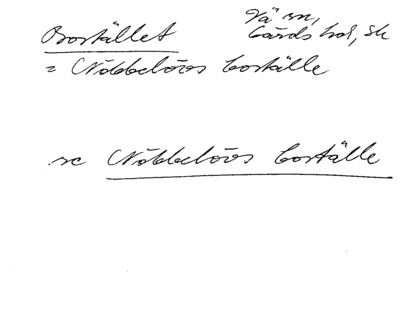 Bostället
Vä sn,
Gärds hd, Sk
= Nöbbelövs boställe
se Nöbbelövs boställe